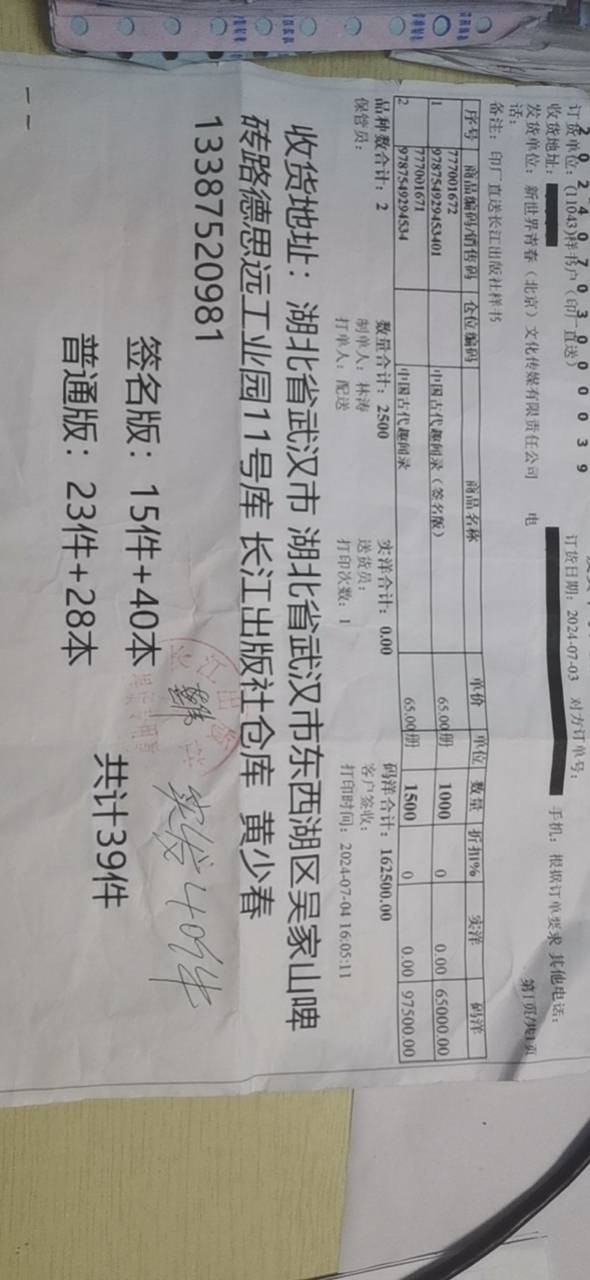 20240703000039
订货单位：(11043)样书户（印厂直送）
订货日期：2024-07-03 对方订单号：
收货地址：
手机：根据订单要求 其他电话：
发货单位：新世界青春（北京）文化传媒有限责任公司 电
话：
第1页/共1页
备注：印厂直送长江出版社样书
序号 商品编码/销售码 仓位编码 商品名称 单价 单位 数量 折扣% 实洋 码洋
1 777001672 978754929453401 中国古代趣闻录（签名版） 65.00 册 1000 0 0.00 65000.00
2 777001671 9787549294534 中国古代趣闻录 65.00 册 1500 0 0.00 97500.00
品种数合计：2 数量合计：2500 实洋合计：0.00 码洋合计：162500.00
保管员： 制单人：林涛 送货员： 客户签收：
打单人：配送 打印次数：1 打印时间：2024-07-04 16:05:11
收货地址：湖北省武汉市 湖北省武汉市东西湖区吴家山啤
砖路德思远工业园11号库 长江出版社仓库 黄少春
13387520981
签名版：15件+40本
普通版：23件+28本
共计39件
实发40件
长江出